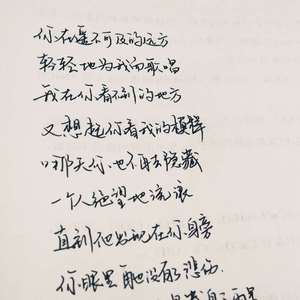 你在遥不可及的远方
轻轻地为我而歌唱
我在你看不到的地方
又想起你看我的模样
那天你也不再隐藏
一个人绝望地流浪
直到他出现在你身旁
你眼里再也没有悲伤